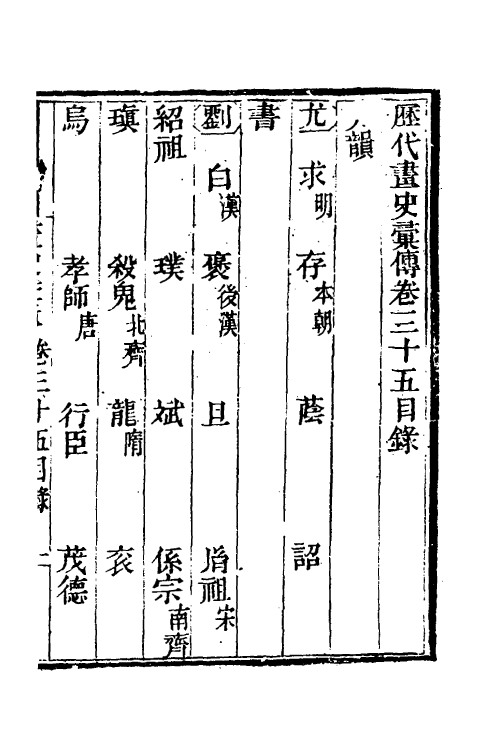 歷代畫史彙傳卷三十五目錄
韻
尤 求明 存本朝 蔭 詔
書
劉 白漢 褒後漢 旦 胤祖宋
紹祖 璞 斌 係宗南齊
瑱 殺鬼北齊 龍隋 袞
烏 孝師唐 行臣 茂德
卷三十五目錄 一